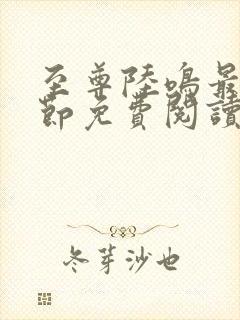 至尊陸鳴最
節免費閱讀
冬芽沙也